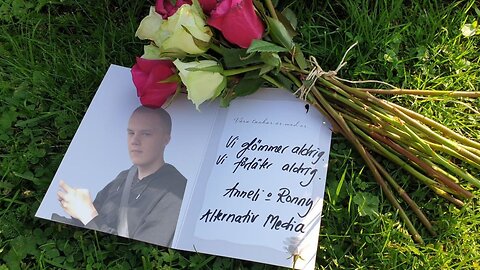 Våra tankar är med er
Vi glömmer aldrig.
Vi förlåter aldrig.
Anneli o Ronny
Alternativ Media